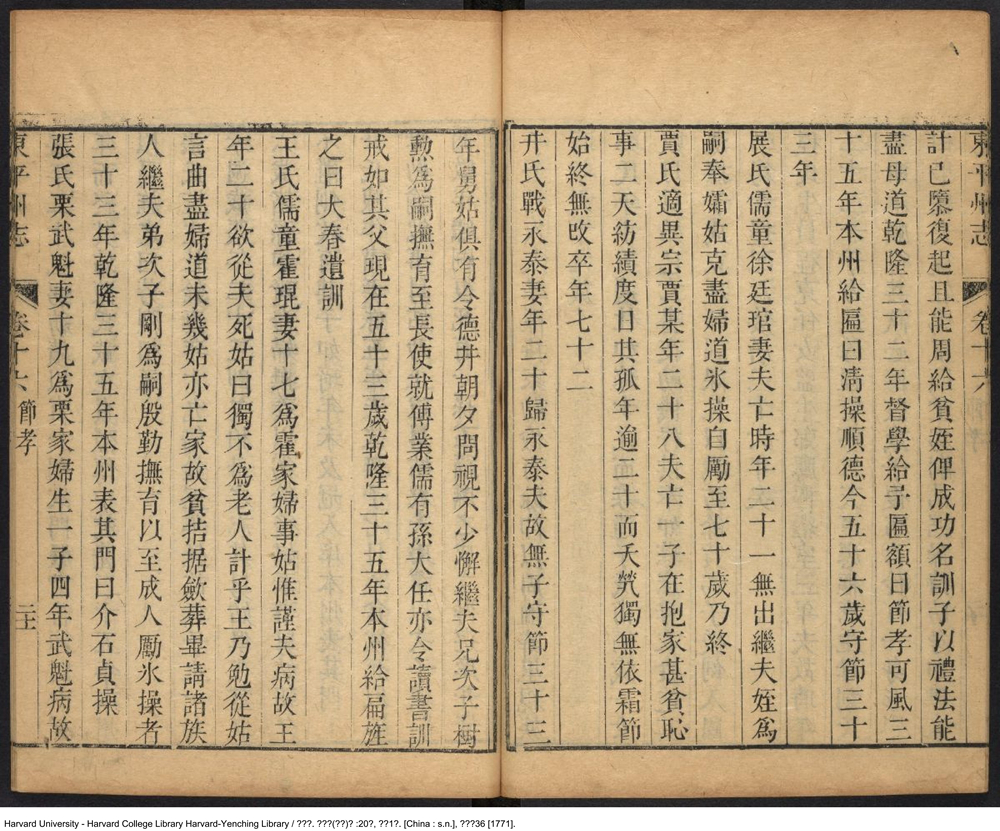 東平州志 卷十六
計已隳復起且能周給貧姪俾成功名訓子以禮法能
盡母道乾隆三十二年督學給予匾額曰節孝可風三
十五年本州給匾曰清操順德今五十六歲守節三十
三年
展氏儒童徐廷琯妻夫亡時年二十一無出繼夫姪為
嗣奉孀姑克盡婦道氷操自勵至七十歲乃終
賈氏適異宗賈某年二十八夫亡一子在抱家甚貧恥
事二天紡績度日其孤年逾二十而夭煢獨無依霜節
始終無改卒年七十二
井氏戰永泰妻年二十歸永泰夫故無子守節三十三
年舅姑俱有令德井朝夕問視不少懈繼夫兄次子樹
勲為嗣撫育至長使就傅業儒有孫大任亦令讀書訓
戒如其父現在五十三歲乾隆三十五年本州給扁旌
之曰大春遺訓
王氏儒童霍琨妻十七為霍家婦事姑惟謹夫病故王
年二十欲從夫死姑曰獨不為老人計乎王乃勉從姑
言曲盡婦道未幾姑亦亡家故貧拮据斂葬畢請諸族
人繼夫弟次子剛為嗣殷勤撫育以至成人勵氷操者
三十三年乾隆三十五年本州表其門曰介石貞操
張氏栗武魁妻十九為栗家婦生一子四年武魁病故
東平州志 卷十六 節孝
Harvard University - Harvard College Library Harvard-Yenching Library / ???. ???(??)? :20?, ??1?. [China : s.n.], ???36 [1771].